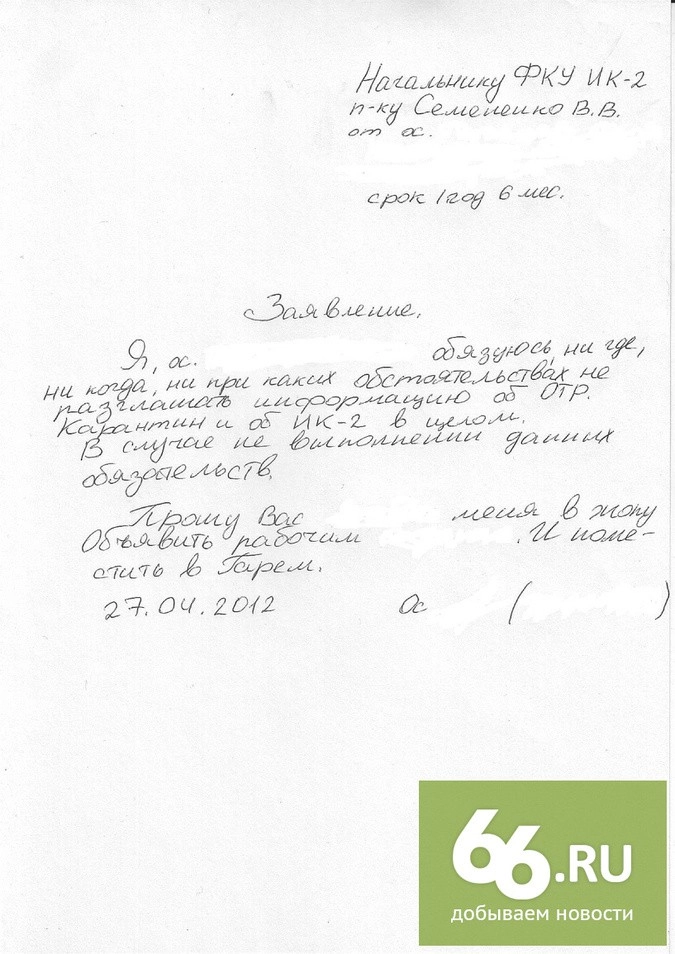 Начальнику ФКУ ИК-2
п-ку Семененко В.В.
от ос.
срок 1 год 6 мес.
Заявление.
Я, ос. обязуюсь, ни где,
ни когда, ни при каких обстоятельствах не
разглашать информацию об Отр.
Карантин и об ИК-2 в целом.
В случае не выполнении данных
обязательств.
Прошу Вас меня в жопу
Объявить рабочим . И поме-
стить в Гарем.
27.04.2012 Ос ( )
66.RU
добываем новости